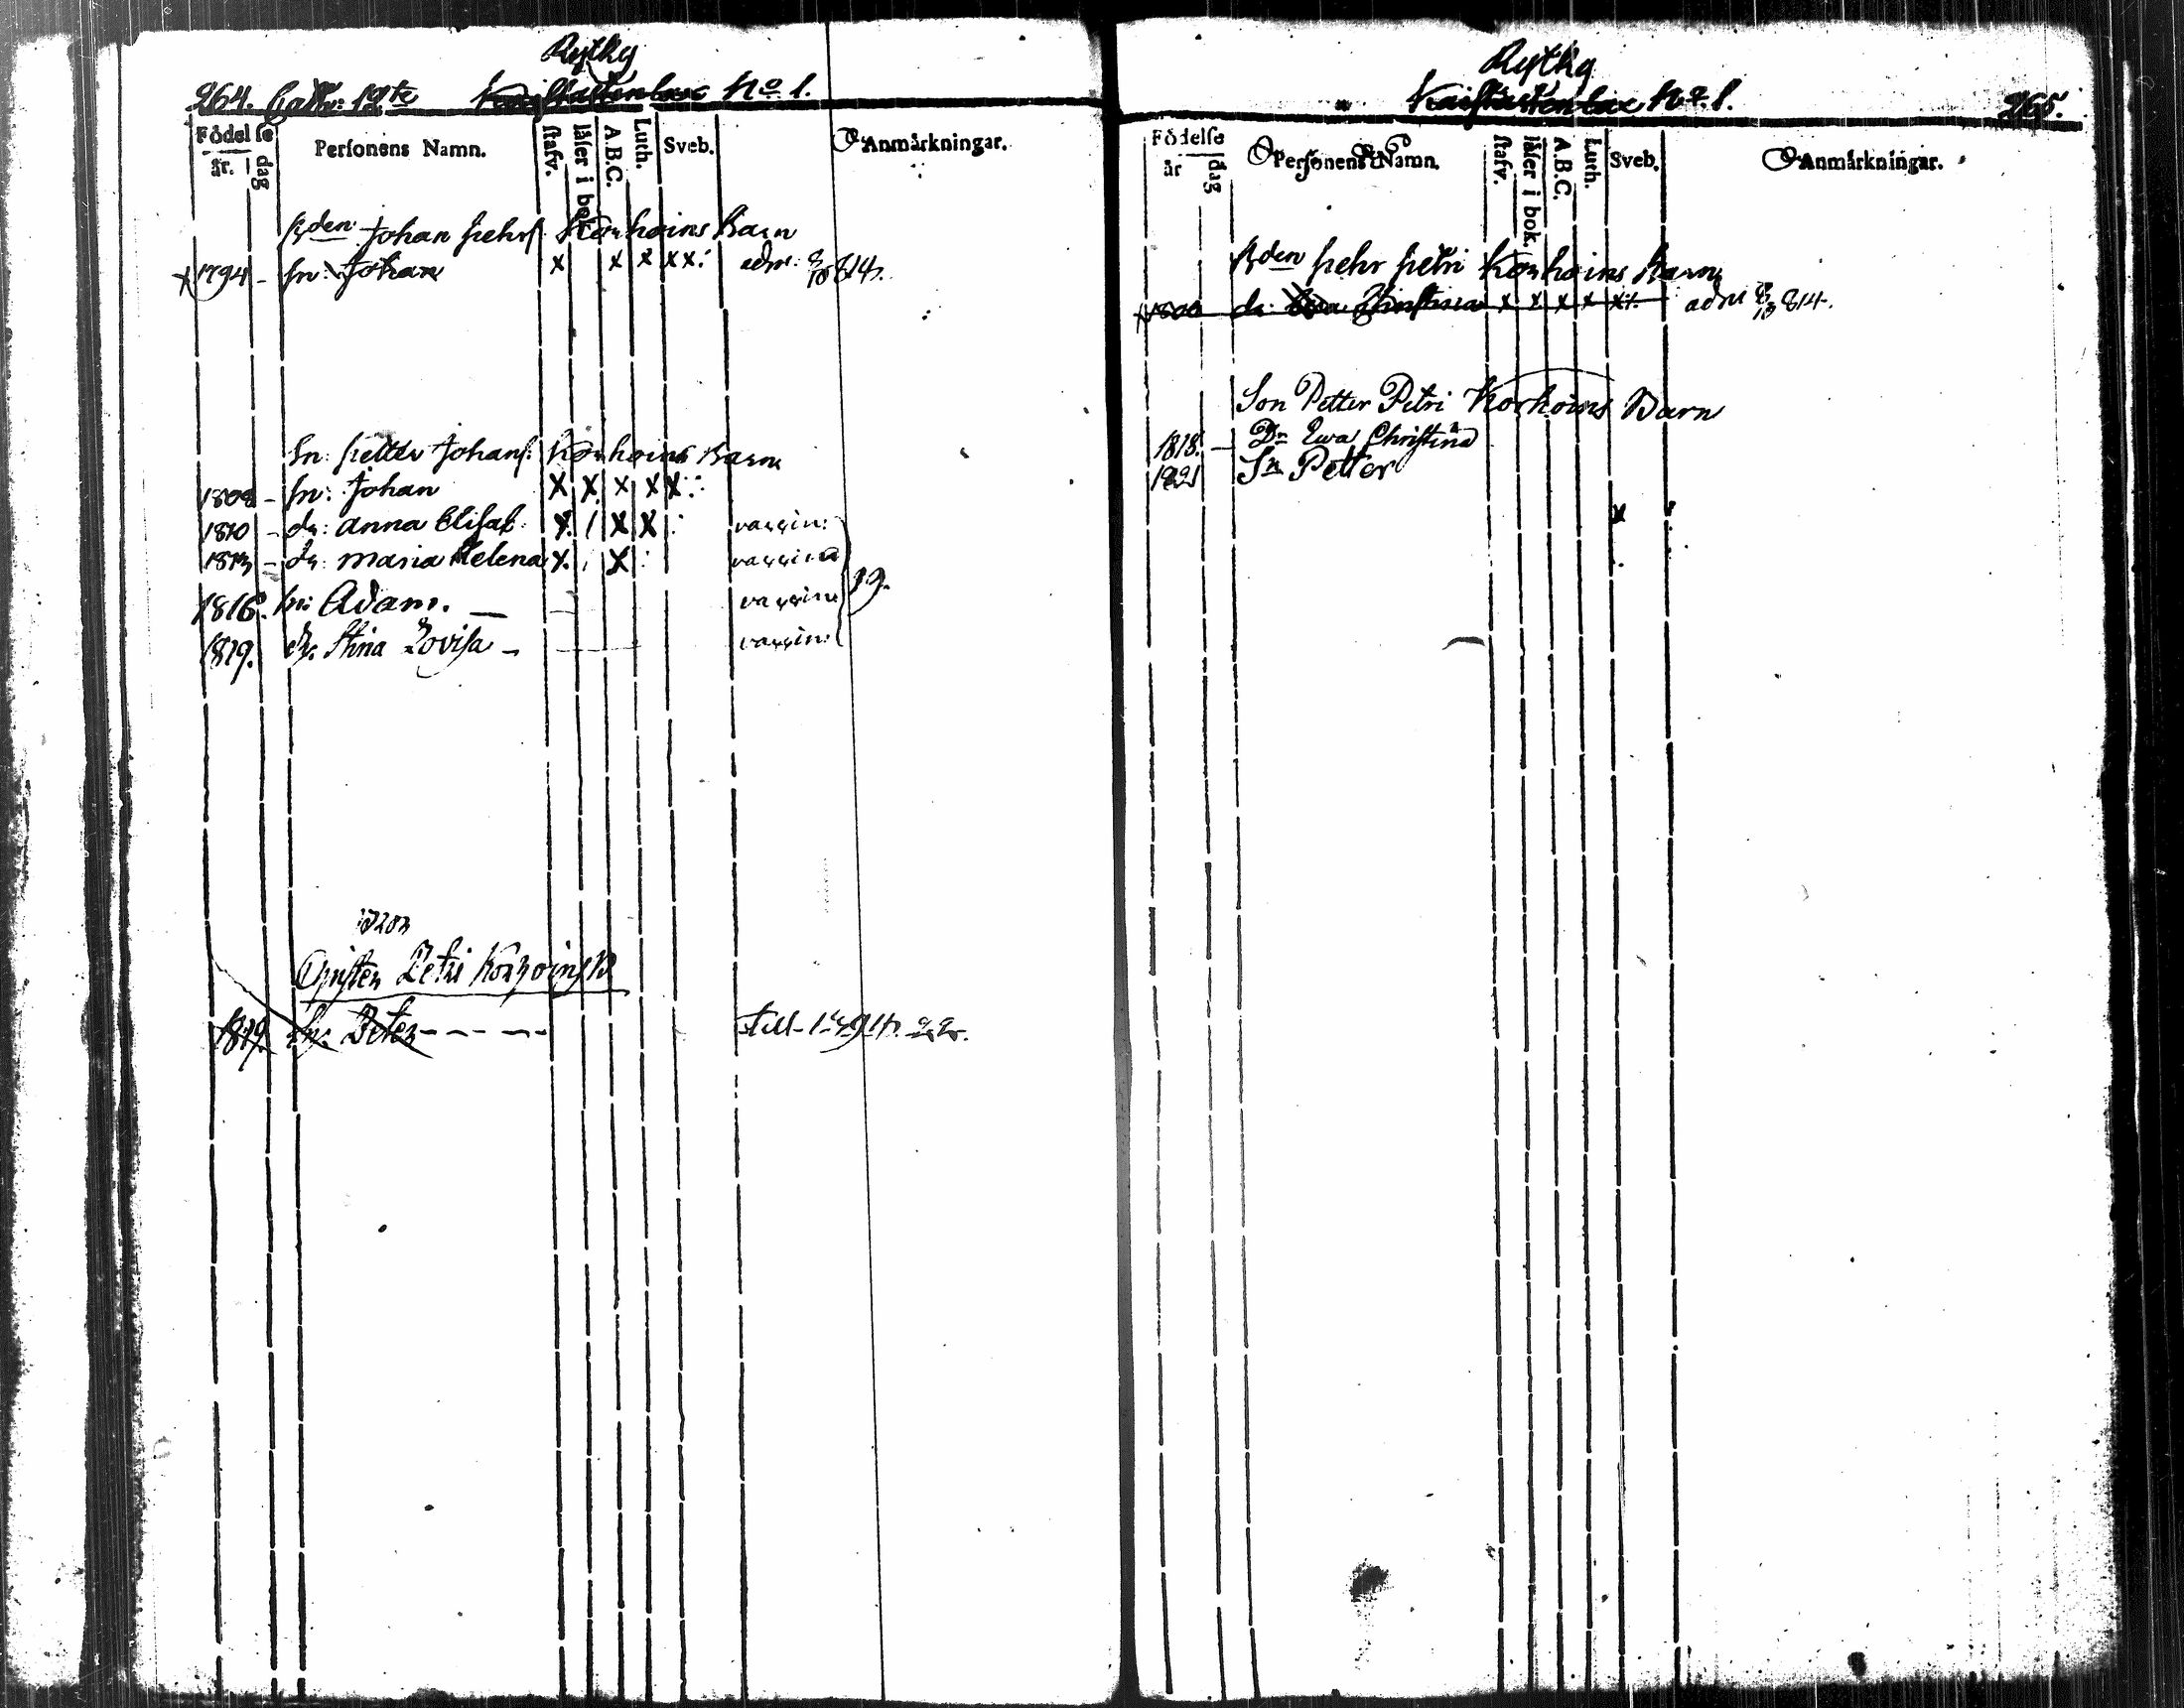 Rytky
264. No 1.
Födelse
år. dag
Personens Namn. stafv. läser i bok. A.B.C. Luth. Sveb. Anmärkningar.
Bden Johan Pehrs: Korhoins Barn
1794 - sn: Johan x x x xx: adm: 814.
Sn: Petter Johans: Korhoins Barn
1808 - sn: Johan x x x x x
1810 - dr: Anna Elisab: x / x x vaccin:
1813 - dr: Maria Helena x. x vaccin:
1816. sn: Adam. — vaccin: 19.
1819. dr. Stina Lovisa — vaccin:
Petri Korhoins B
1819. sn: Peter - - - -
Rytky
No 1. 265.
Födelse
år dag
Personens Namn. stafv. läser i bok. A.B.C. Luth. Sveb. Anmärkningar.
Bden Pehr Petri Korhoins Barn
1800 dr: Christina x x x x x adm 814.
Son Petter Petri Korhoins Barn
1818. - Dr Ewa Christina
1821 Sn Petter
x